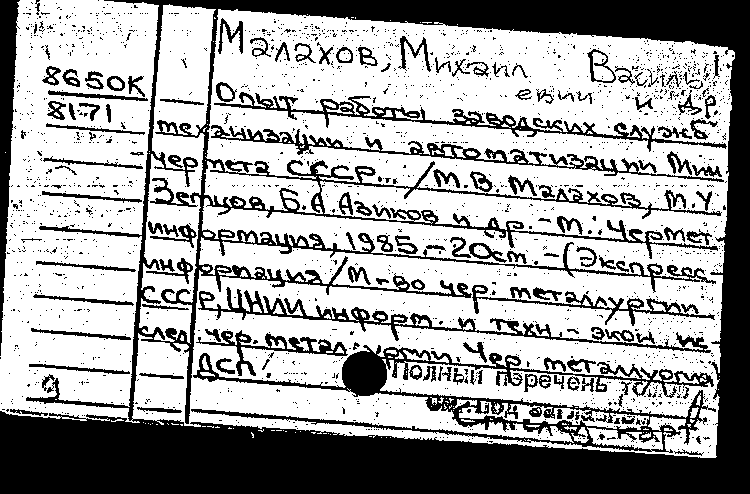 Малахов, Михаил Василь
евич и др.
8650К
8171
Опыт работы заводских служб
механизации и автоматизации Мин
чермета СССР... / М.В. Малахов, М.У.
Земцов, Б.А. Азиков и др. - М.: Чермет-
информация, 1985. - 20 ст. - (Экспресс-
информация / М-во чер. металлургии
СССР, ЦНИИ информ. и техн.-экон. ис-
след. чер. металлургии. Чер. металлургия)
ДСП.
Полный перечень
см. под заглавием
См. след. карт.
9